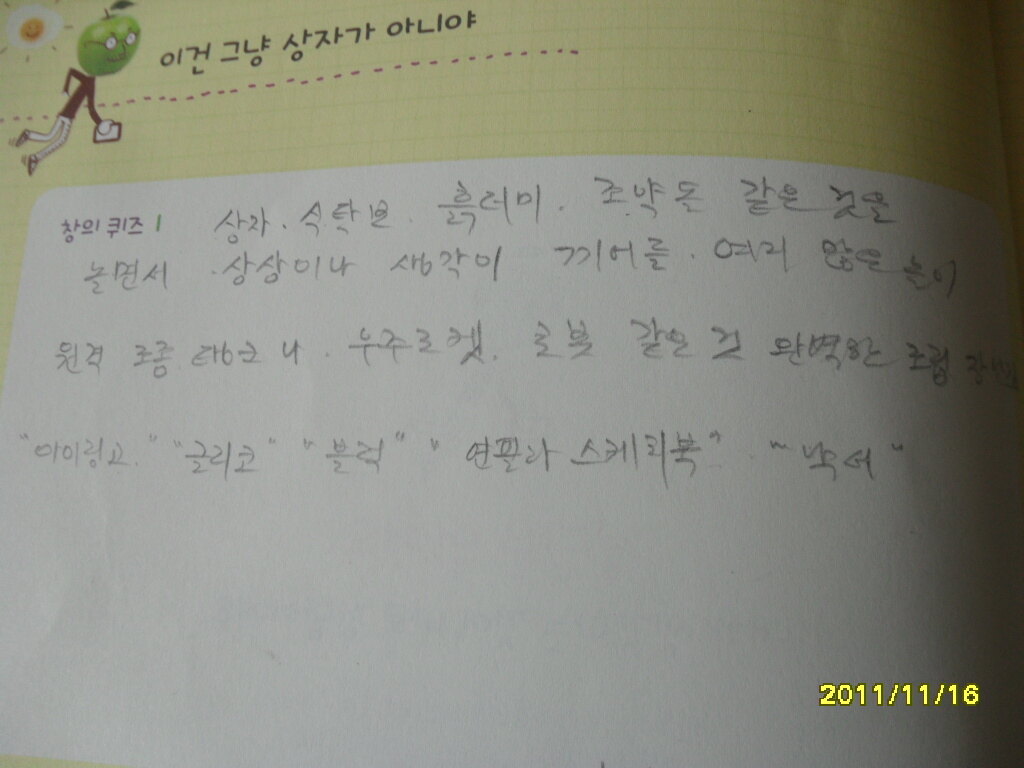 이건 그냥 상자가 아니야
창의 퀴즈 1 상자. 식탁보. 흙더미. 조약돌 같은 것을
놀면서 상상이나 생각이 끼어를. 여지 많은 놀이
원격 조종 탱크나. 우주로켓. 로봇 같은 것 완벽한 조립
"아이링고" "글리코" "블럭" "연필과 스케치북" "낙서"
2011/11/16